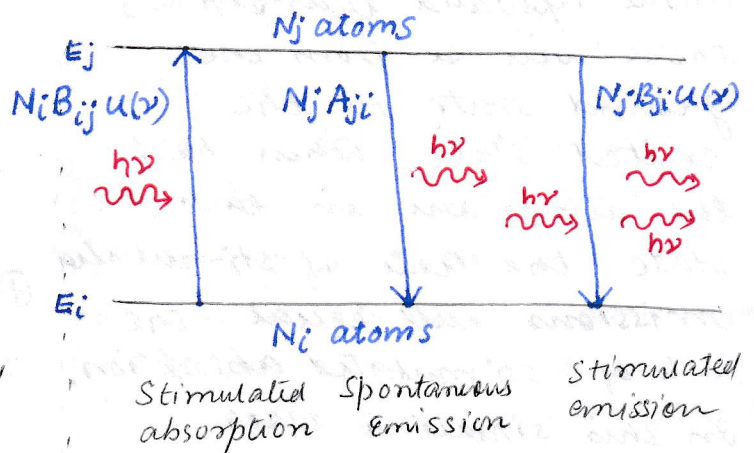 Nj atoms
Ej
NiBij u(ν) NjAji NjBji u(ν)
hν hν hν hν
hν
Ei
Ni atoms
Stimulated absorption
Spontaneous Emission
Stimulated emission